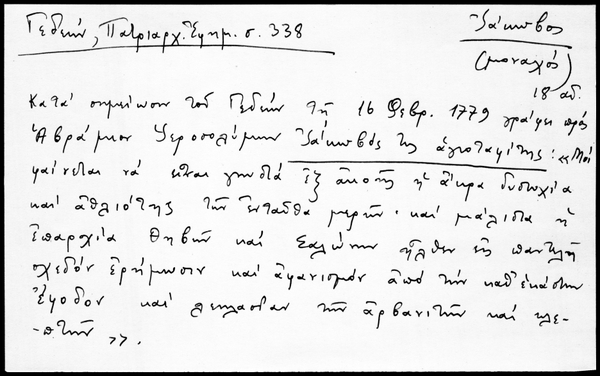 Γεδεών, Πατριαρχ. Ἐφημ. σ. 338
Ἰάκωβος
(μοναχός)
18 αἰ.
Κατά σημείωσιν τοῦ Γεδεών τῇ 16 Φεβρ. 1779 γράφει πρός
Ἀβράμιον Ἱεροσολύμων Ἰάκωβός τις ἁγιοταφίτης : «Μοί
φαίνεται νά εἶναι γνωστά ἐξ ἀκοῆς ἡ ἄκρα δυστυχία
καί ἀθλιότης τῶν ἐνταῦθα μερῶν· καί μάλιστα ἡ
ἐπαρχία Θηβῶν καί Σαλώνων ἦλθεν εἰς παντελῆ
σχεδόν ἐρήμωσιν καί ἀφανισμόν ἀπό τήν καθ' ἑκάστην
ἔφοδον καί λεηλασίαν τῶν ἀρβανιτῶν καί κλε-
-πτῶν».